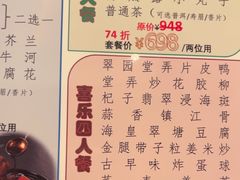 二选一
芥兰
牛河
腐花
香片)
位用
人餐
普通茶 (可选普洱/寿眉/香片)
原价¥948
74折
套餐价 ¥698/两位用
喜乐四人餐
翠园堂弄片皮鸭
杞子翡翠浸海斑
蒜香镇江骨
海皇翠塘豆腐
金腿带子粒姜米炒
古早味炸蛋球